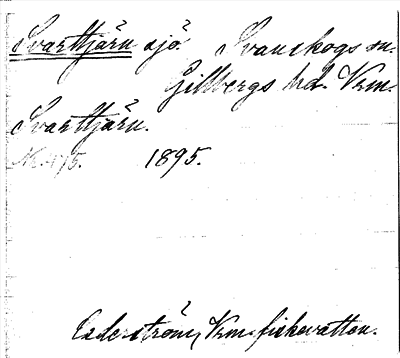 Svarttjärn sjö Svanskogs sn.
Gillbergs hd. Vrm.
Svarttjärn.
1895.
Cederström, Vrm. fiskevatten.